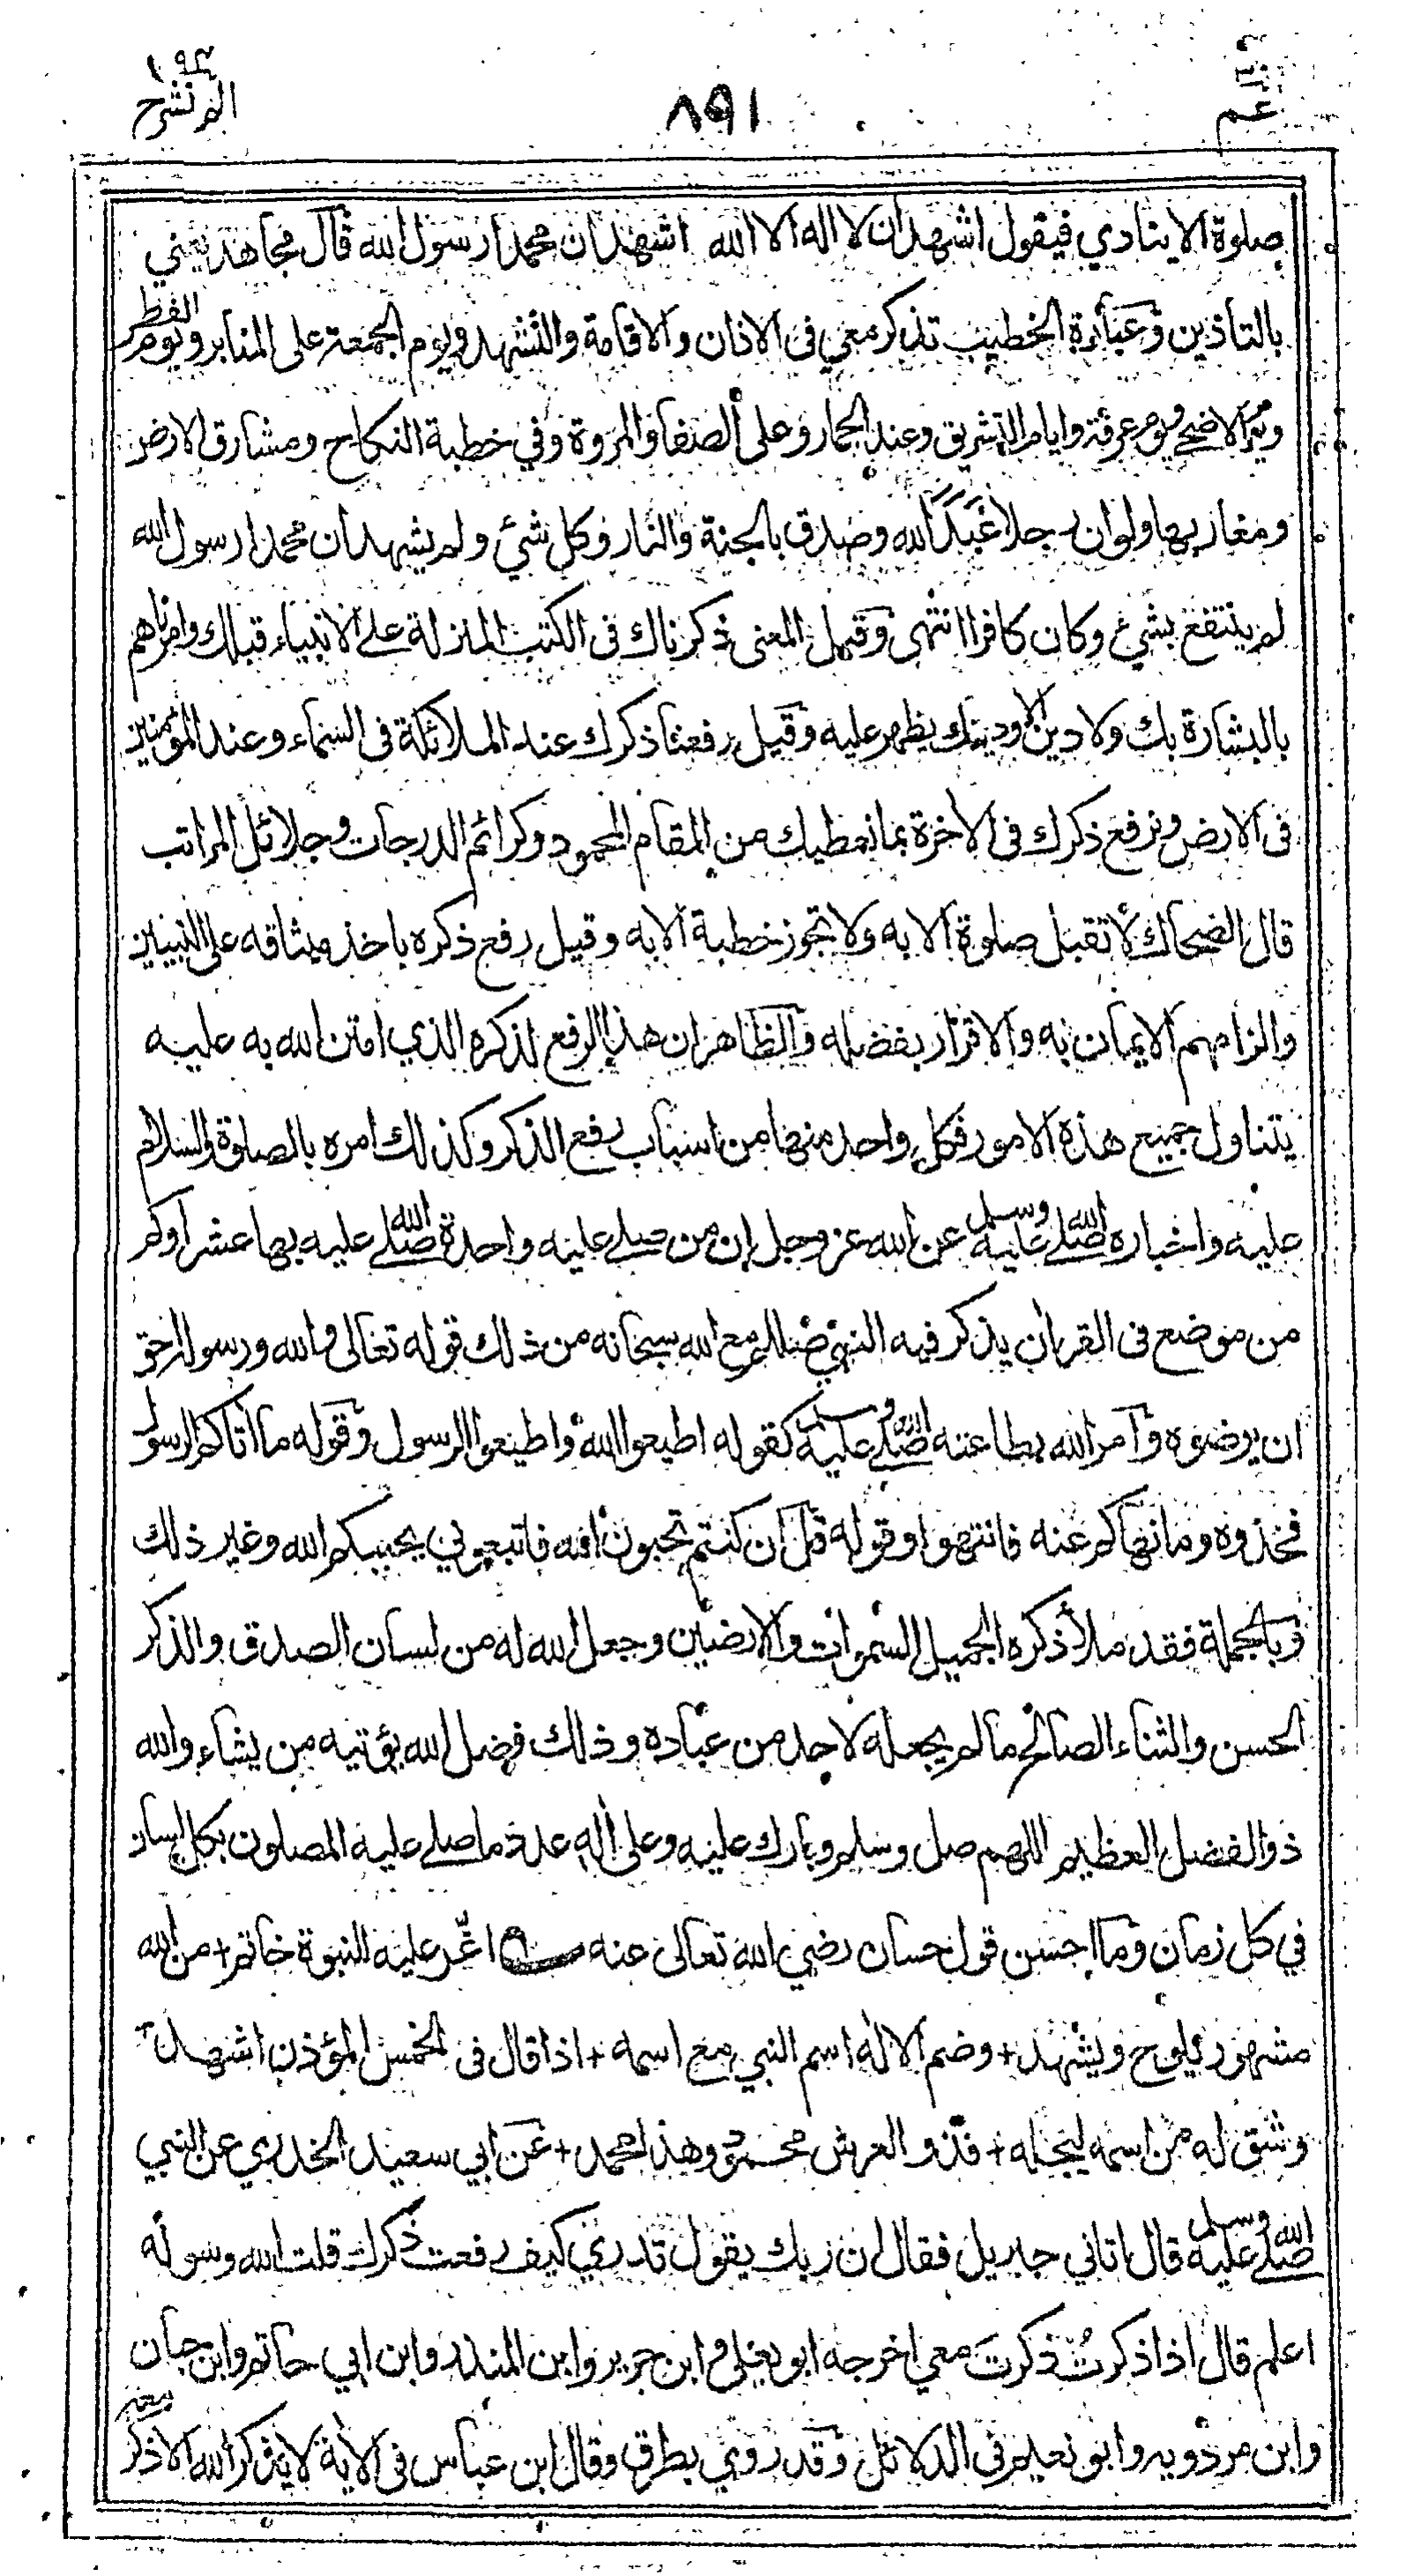 عم ٣٠
١٩٨
٩٤ الم نشرح
صلوة الا ينادي فيقول اشهد ان لا اله الا الله اشهد ان محمدا رسول الله قال مجاهد يعني
بالتاذين وعبارة الخطيب تذكر معي في الاذان والاقامة والتشهد ويوم الجمعة على المنابر ويوم الفطر
ويوم الاضحى ويوم عرفة وايام التشريق وعند الجمار وعلى الصفا والمروة وفي خطبة النكاح ومشارق الارض
ومغاربها ولو ان رجلا عبد الله وصدق بالجنة والنار وكل شئ ولم يشهد ان محمدا رسول الله
لم ينتفع بشئ وكان كافرا انتهى وقيل المعنى ذكرناك في الكتب المنزلة على الانبياء قبلك وامرناهم
بالبشارة بك ولا دين الا ودينك يظهر عليه وقيل رفعنا ذكرك عند الملائكة في السماء وعند المؤمنين
في الارض ونرفع ذكرك في الاخرة بما نعطيك من المقام المحمود وكرائم الدرجات وجلائل المراتب
قال الضحاك لا تقبل صلوة الا به ولا تجوز خطبة الا به وقيل رفع ذكره باخذ ميثاقه على النبيين
والزامهم الايمان به والاقرار بفضله والظاهر ان هذا الرفع لذكره الذي امتن الله به عليه
يتناول جميع هذه الامور فكل واحد منها من اسباب رفع الذكر وكذلك امره بالصلوة والسلام
عليه واخباره صلى الله عليه وسلم عن الله عز وجل ان من صلى عليه واحدة صلى الله عليه بها عشرا وكم
من موضع في القران يذكر فيه النبي صللم مع الله سبحانه من ذلك قوله تعالى والله ورسوله احق
ان يرضوه وامر الله بطاعته صلى الله عليه وسلم كقوله اطيعوا الله واطيعوا الرسول وقوله ما اتاكم الرسول
فخذوه وما نهاكم عنه فانتهوا وقوله قل ان كنتم تحبون الله فاتبعوني يحببكم الله وغير ذلك
وبالجملة فقد ملأ ذكره الجميل السموات والارضين وجعل الله له من لسان الصدق والذكر
الحسن والثناء الصالح ما لم يجعله لاحد من عباده وذلك فضل الله يؤتيه من يشاء والله
ذو الفضل العظيم اللهم صل وسلم وبارك عليه وعلى اله عدد ما صلى عليه المصلون بكل لسان
في كل زمان وما احسن قول حسان رضي الله تعالى عنه اغر عليه للنبوة خاتم + من الله
مشهور يلوح ويشهد + وضم الاله اسم النبي مع اسمه + اذا قال في الخمس المؤذن اشهد
وشق له من اسمه ليجله + فذو العرش محمود وهذا محمد + عن ابي سعيد الخدري عن النبي
صلى الله عليه وسلم قال اتاني جبريل فقال ان ربك يقول تدري كيف رفعت ذكرك قلت الله ورسوله
اعلم قال اذا ذكرتُ ذكرتَ معي اخرجه ابو يعلى وابن جرير وابن المنذر وابن ابي حاتم وابن حبان
وابن مردويه وابو نعيم في الدلائل وقد روي بطرق وقال ابن عباس في الاية لا يذكر الله الا ذكر معه